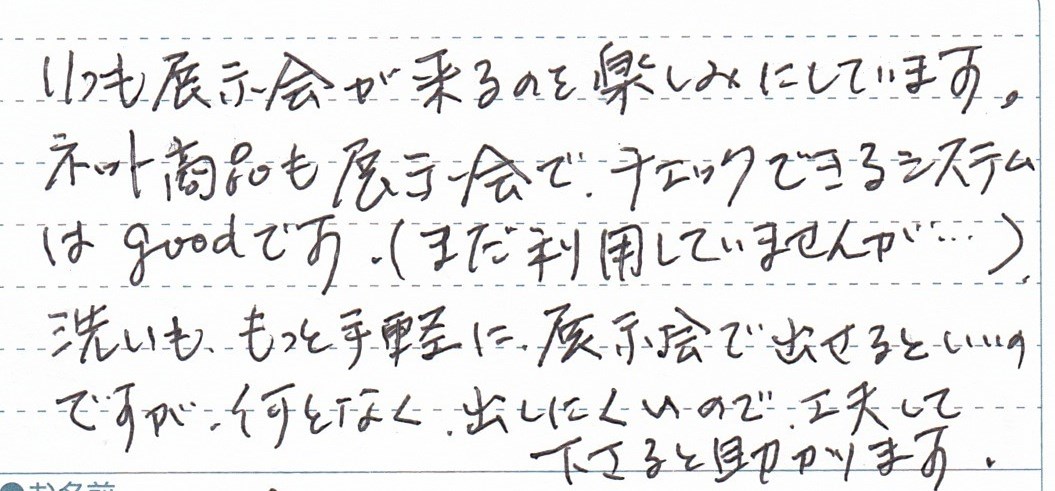 いつも展示会が来るのを楽しみにしています。
ネット商品も展示会で、チェックできるシステム
はgoodです。(まだ利用していませんが…)。
洗いも、もっと手軽に、展示会で出せるといいの
ですが、何となく、出しにくいので、工夫して
下さると助かります。
●お名前